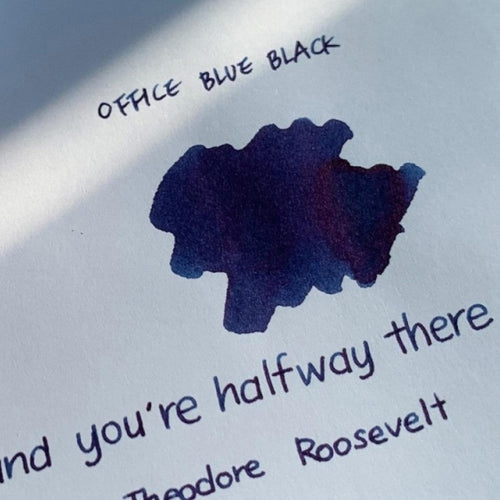 OFFICE BLUE BLACK
and you're halfway there
Theodore Roosevelt